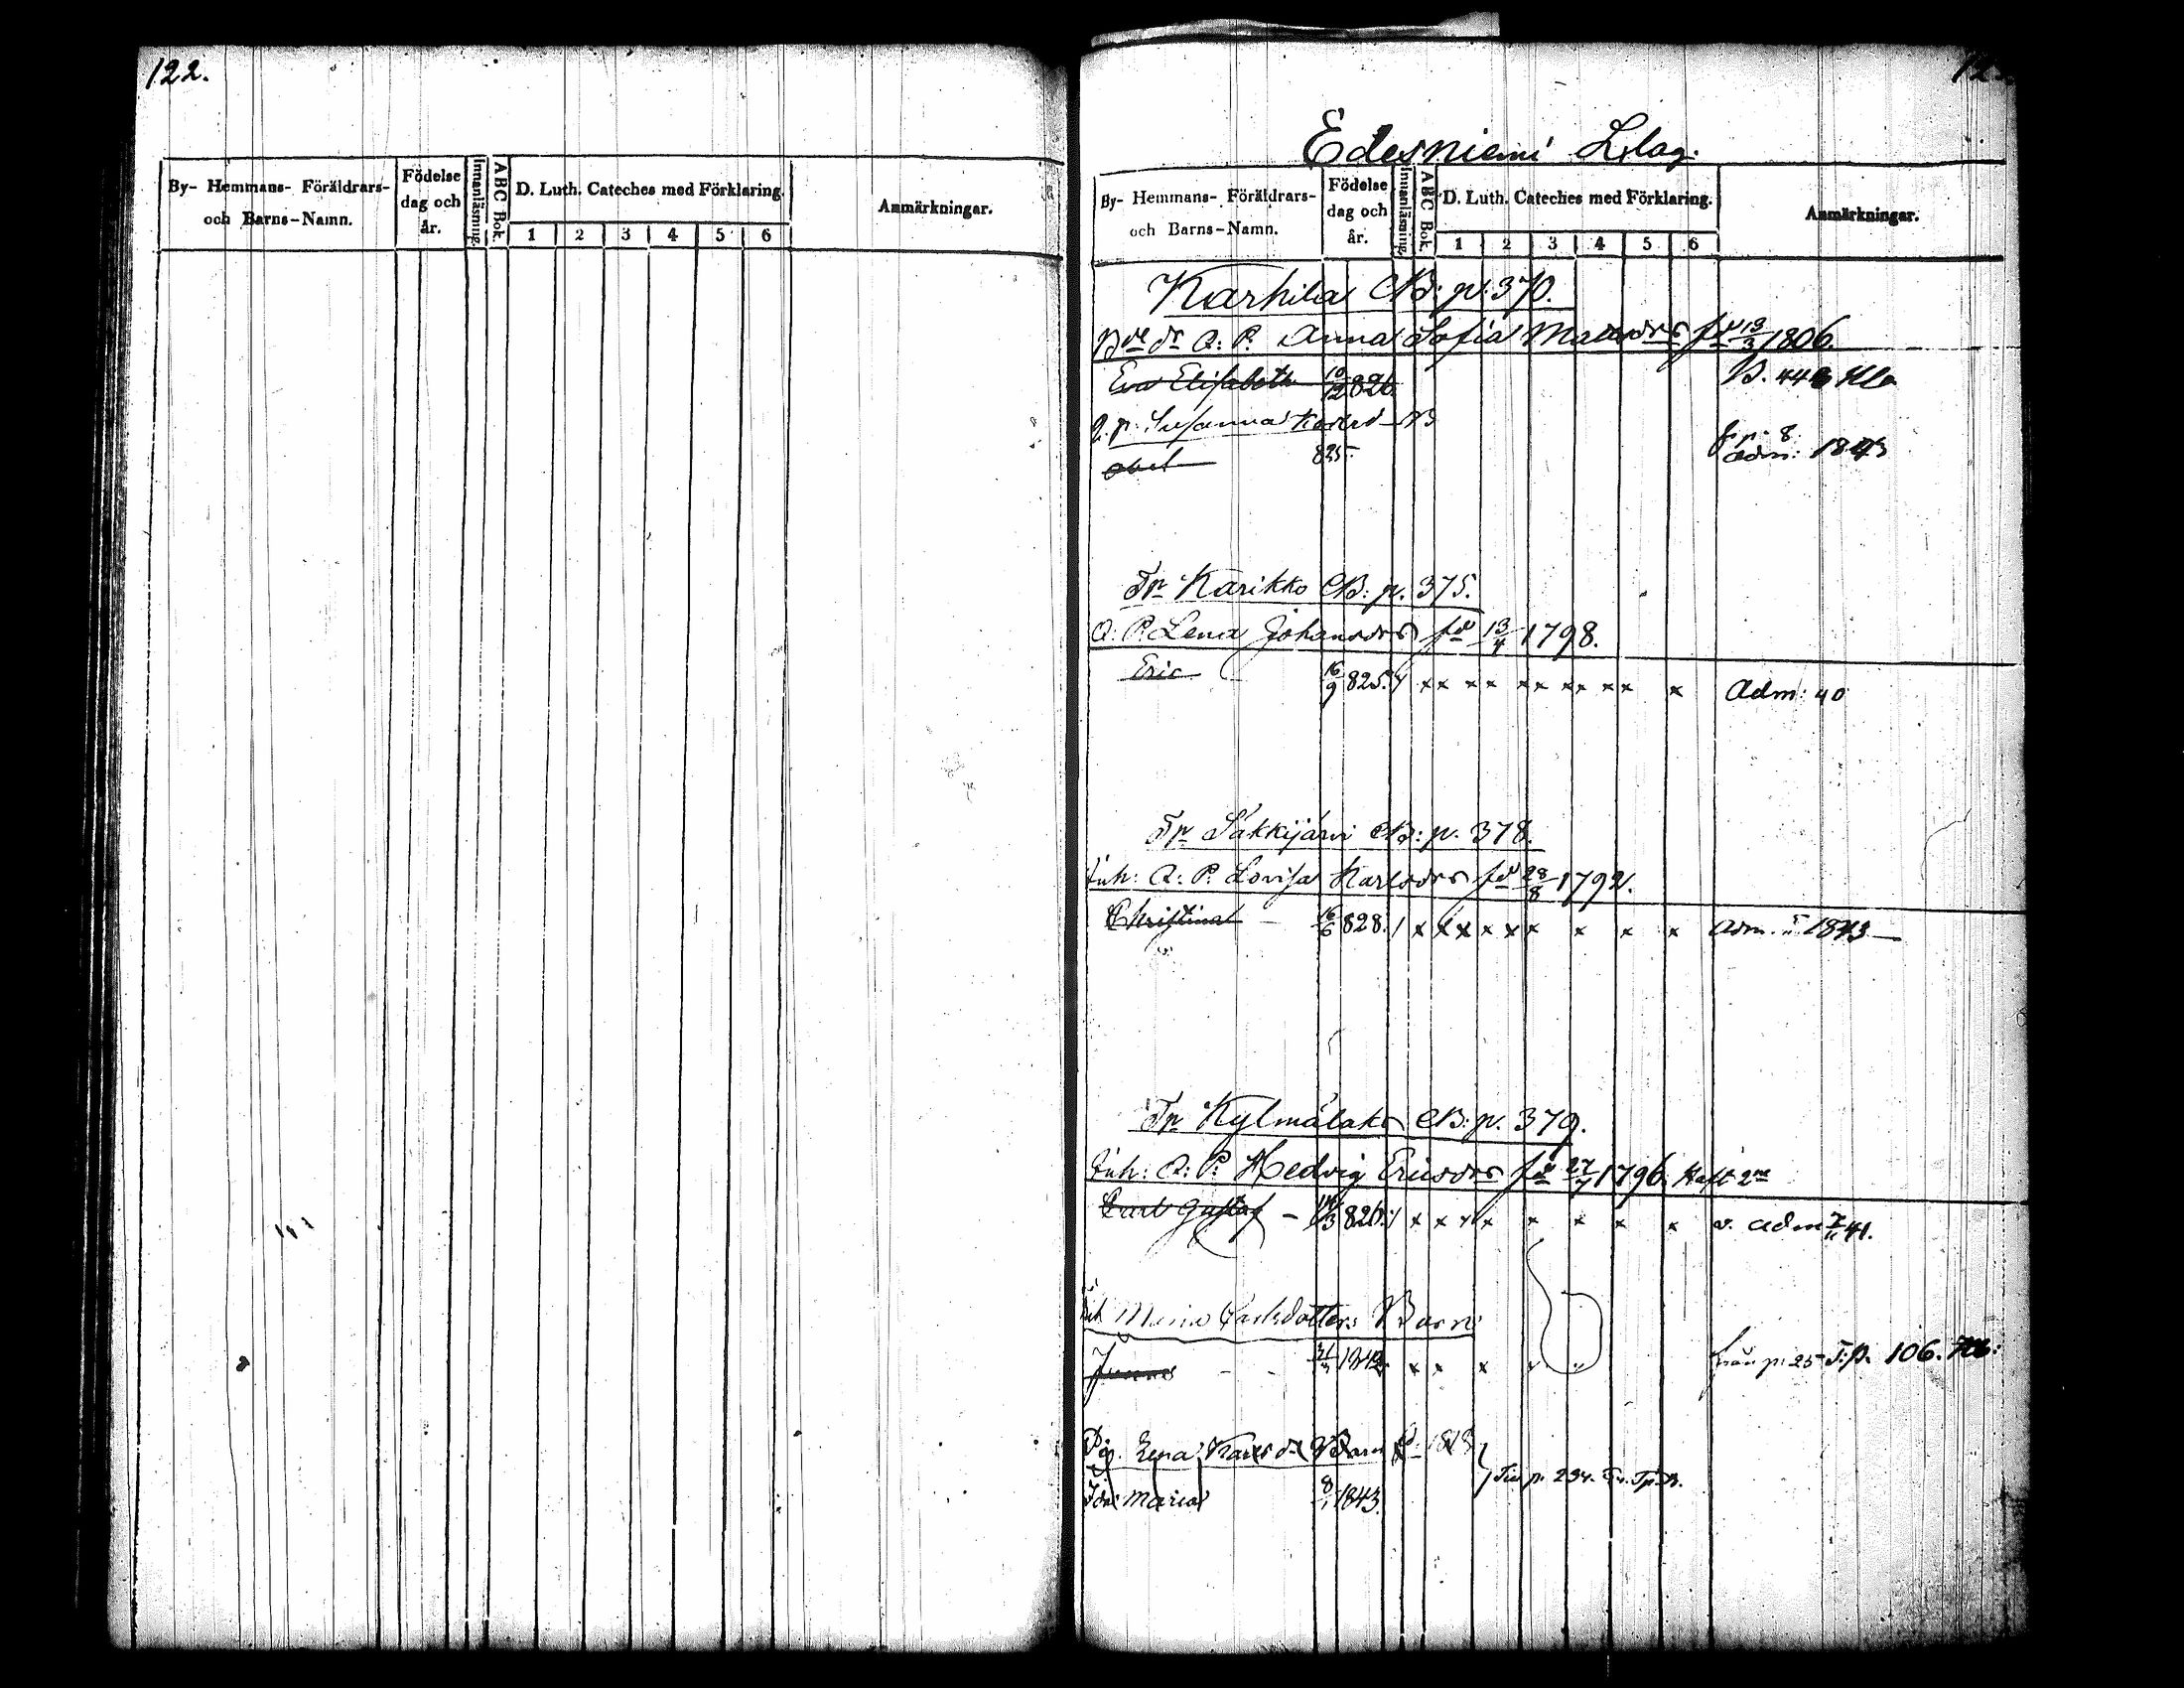 122.
By- Hemmans- Föräldrars-
och Barns-Namn.
Födelse
dag och
år.
Innanläsning.
ABC Bok.
D. Luth. Cateches med Förklaring.
1 2 3 4 5 6
Anmärkningar.
Edesniemi Lslag.
By- Hemmans- Föräldrars-
och Barns-Namn.
Födelse
dag och
år.
Innanläsning.
ABC Bok.
D. Luth. Cateches med Förklaring.
1 2 3 4 5 6
Anmärkningar.
Karhila CB: p: 370.
Q: P. Anna Sofia 1806.
Eva Elisabeth 10/12 826.
Q. p. Susanna
825. adm: 1843
Tp Karikko CB: p. 375.
Q: P. Lena Johansdr fd 13/4 1798.
Eric 16/9 825. x x x x x x x x x x x Adm: 40
Tp Säkkijärvi CB: p. 378.
Inh: Q: P. Lovisa Karlsdr fd 28/8 1792.
Christina 16/6 828. x x x x x x x x x Adm. 1843
Tp Kylmälaks CB: p. 379.
Inh: Q: P: Hedvig Ericsdr fd 27/7 1796. Haft 2ne
Carl Gustaf 826. x x x x x x x x v. adm 41.
Carlsdotters Barn
1842 x x x x från p: 25 T:p. 106.
Pig. Lena Karlsdr Barn fd 1818
p. 234.
Ida Maria 8/1 1843.